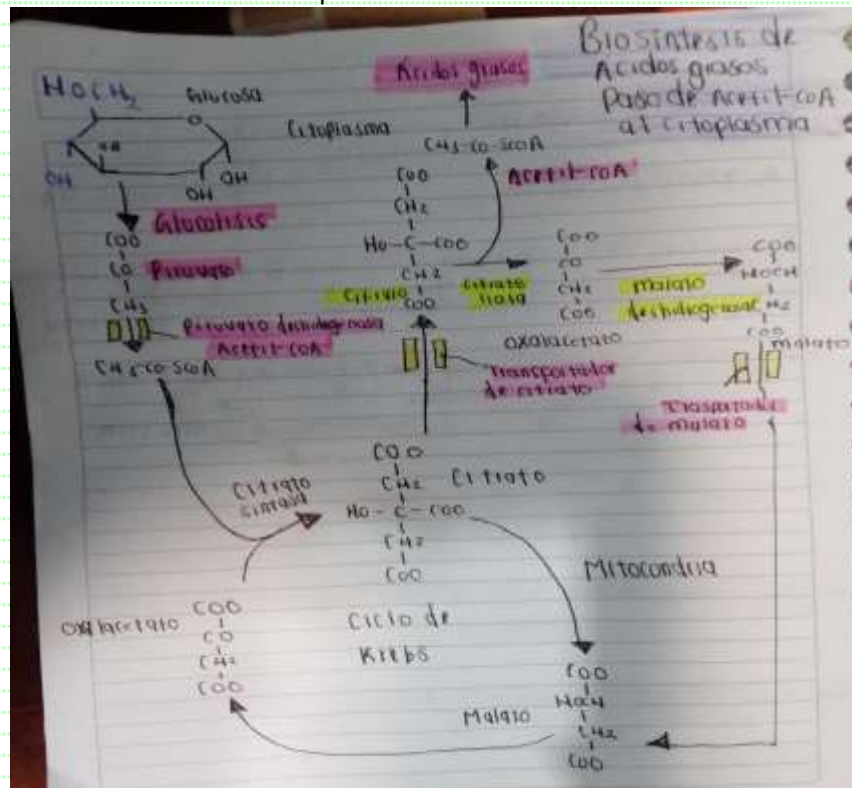 Biosíntesis de
Acidos grasos
Paso de Acetil-coA
al citoplasma
HOCH2
Glucosa
O
OH
OH
OH
Citoplasma
Acidos grasos
CH3-co-scoA
Acetil-coA
Glucolisis
COO
CO
CH3
Piruvato
Piruvato deshidrogenasa
Acetil-coA
CH3-co-scoA
COO
CH2
HO-C-COO
CH2
COO
Citrato
citrato
liasa
COO
CO
CH2
COO
oxalacetato
malato
deshidrogenasa
COO
HOCH
H2
COO
malato
Transportador
de citrato
Trasportador
de malato
Citrato
sintasa
COO
CH2
HO-C-COO
CH2
COO
Citrato
Mitocondria
Oxalacetato
COO
CO
CH2
COO
Ciclo de
Krebs
Malato
COO
HOCH
CH2
COO